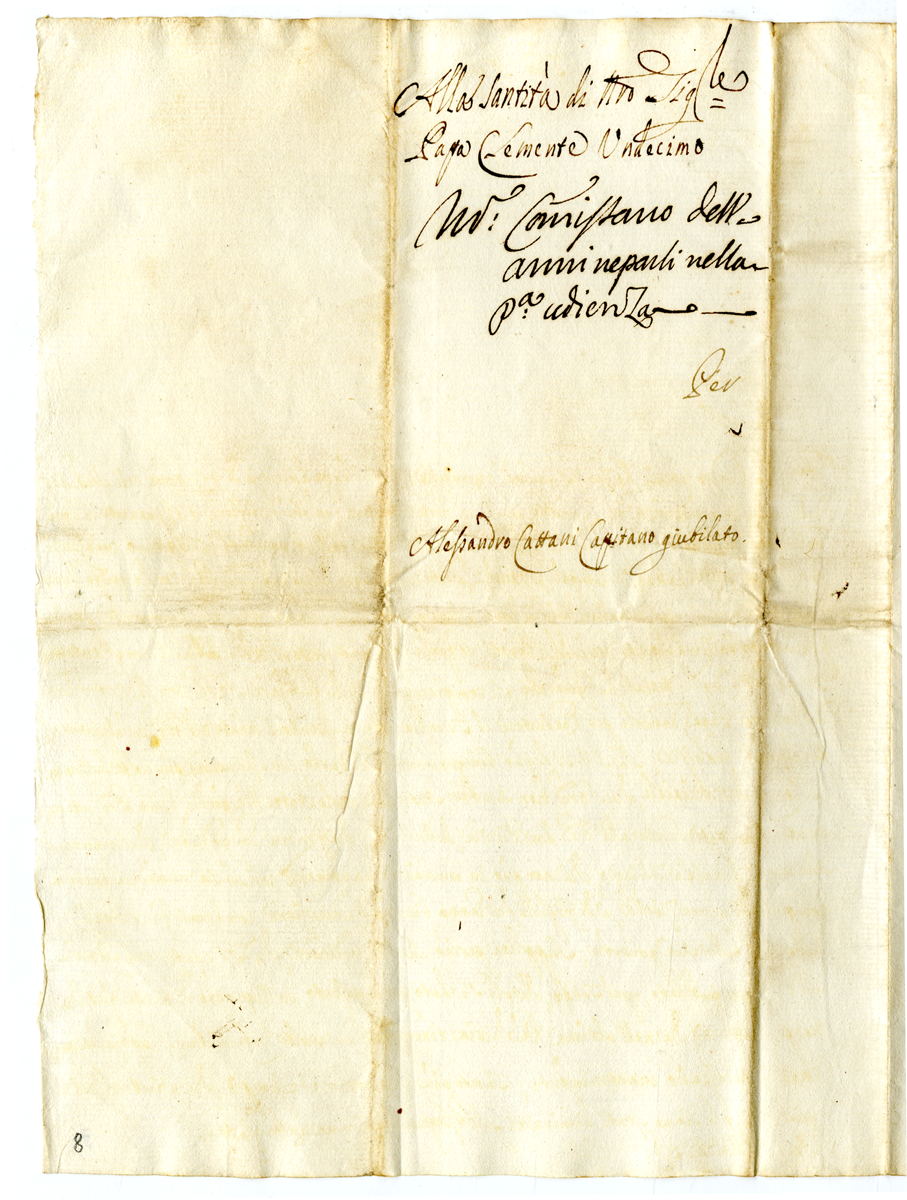 Alla Santità di Nro Sig.le
Papa Clemente Undecimo
Md.r Comissario dell'
armi ne parli nella
p.a udienza
Per
Alessandro Cattani Capitano giubilato.
8